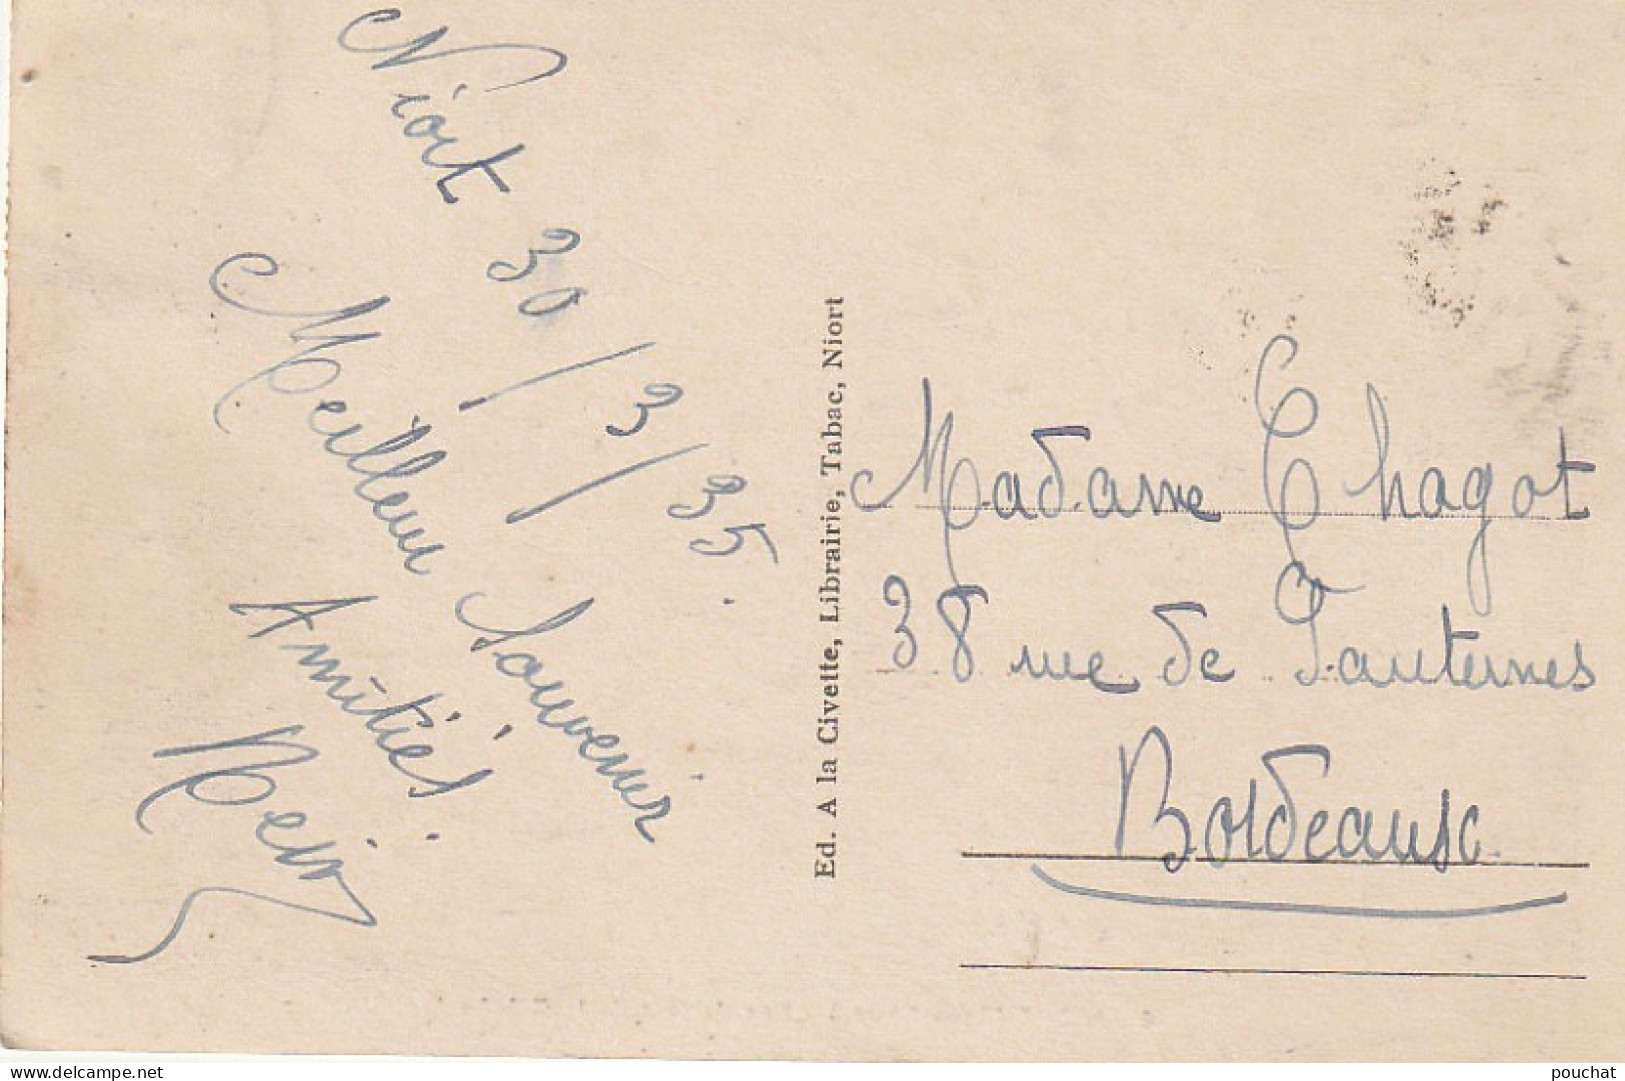 Niort 30/3/35.
Meilleur Souvenir
Amitiés.
Ed. A la Civette, Librairie, Tabac, Niort
Madame Chagot
38 rue de
Bordeaux
www.delcampe.net
pouchat